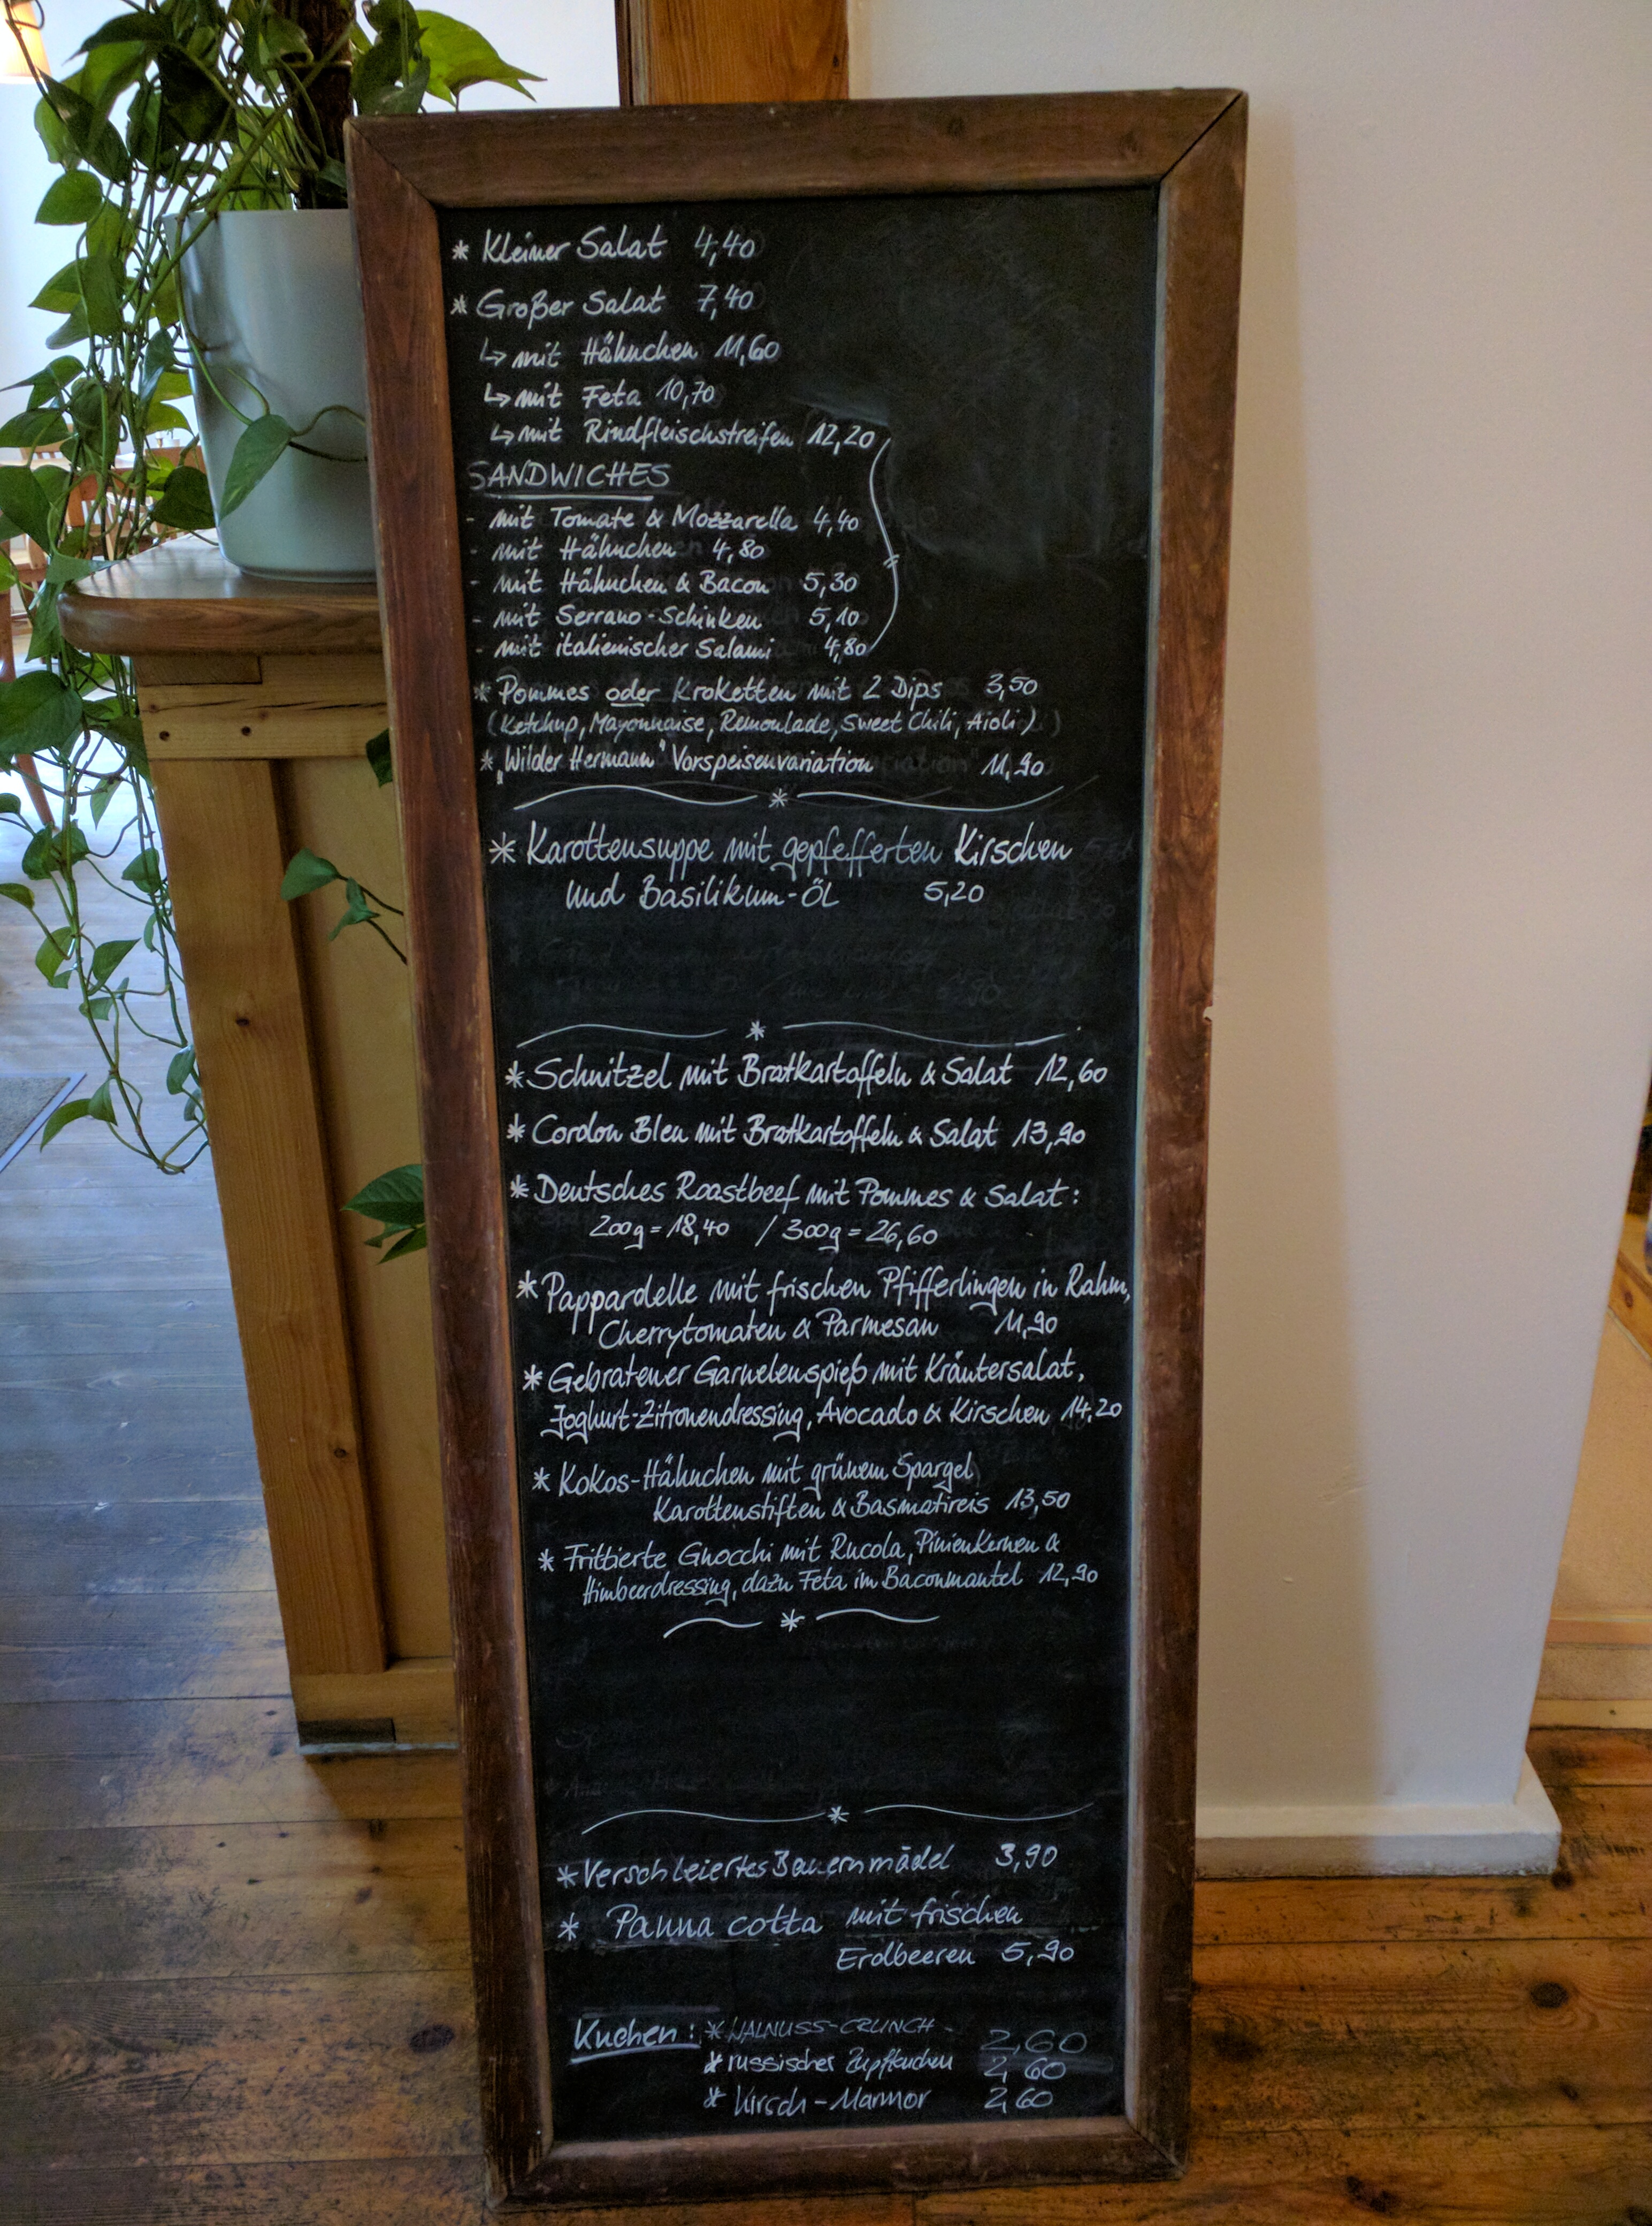 * Kleiner Salat 4,40
* Großer Salat 7,40
↳ mit Hähnchen 11,60
↳ mit Feta 10,70
↳ mit Rindfleischstreifen 12,20
SANDWICHES
- mit Tomate & Mozzarella 4,40
- mit Hähnchen 4,80
- mit Hähnchen & Bacon 5,30
- mit Serrano-Schinken 5,10
- mit italienischer Salami 4,80
* Pommes oder Kroketten mit 2 Dips 3,50
(Ketchup, Mayonnaise, Remoulade, Sweet Chili, Aioli)
* „Wilder Hermann" Vorspeisenvariation 11,90
* Karottensuppe mit gepfefferten Kirschen
und Basilikum-Öl 5,20
* Schnitzel mit Bratkartoffeln & Salat 12,60
* Cordon Bleu mit Bratkartoffeln & Salat 13,90
* Deutsches Roastbeef mit Pommes & Salat:
200g = 18,40 / 300g = 26,60
* Pappardelle mit frischen Pfifferlingen in Rahm,
Cherrytomaten & Parmesan 11,90
* Gebratener Garnelenspieß mit Kräutersalat,
Joghurt-Zitronendressing, Avocado & Kirschen 14,20
* Kokos-Hähnchen mit grünem Spargel
Karottenstiften & Basmatireis 13,50
* Frittierte Gnocchi mit Rucola, Pinienkernen &
Himbeerdressing, dazu Feta im Baconmantel 12,90
* Verschleiertes Bauernmädel 3,90
* Panna cotta mit frischen
Erdbeeren 5,90
Kuchen: * WALNUSS-CRUNCH - 2,60
* russischer Zupfkuchen 2,60
* Kirsch-Marmor 2,60